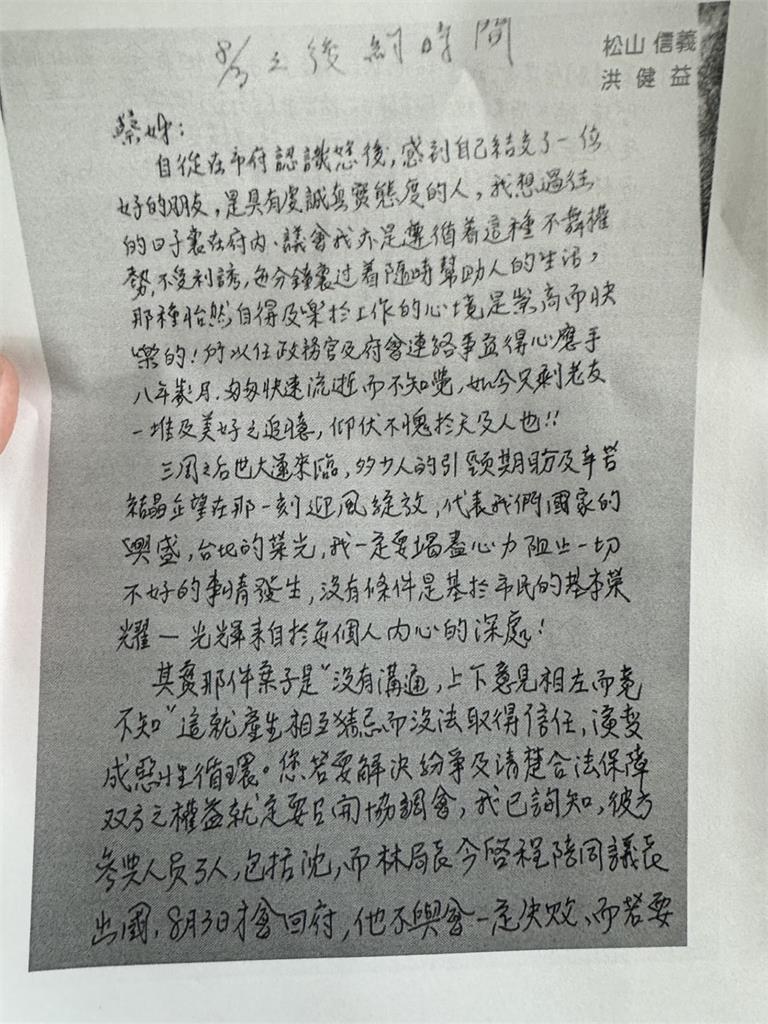 8/3之後約時間
松山 信義
洪健益
蔡姊：
自從在市府認識您後，感到自己結交了一位
好的朋友，是具有虔誠真實態度的人，我想過往
的日子裏在府內、議會我亦是遵循着這種不舞權
勢，不受利誘，每分鐘裏过着隨時幫助人的生活，
那種怡然自得及樂於工作的心境是崇高而快
樂的！所以任政務官及府會連絡事宜得心應手
八年歲月，匆匆快速流逝而不知覺，如今只剩老友
一堆及美好之追憶，仰伏不愧於天及人也!!
三周之后世大運來臨，多少人的引頸期盼及辛苦
結晶企望在那一刻迎風綻放，代表我們國家的
興盛，台北的榮光，我一定要竭盡心力阻止一切
不好的事情發生，沒有條件是基於市民的基本榮
耀—光輝來自於每個人內心的深處！
其實那件案子是"沒有溝通，上下意見相左而竟
不知"這就產生相互猜忌而沒法取得信任，演变
成惡性循環。您若要解決紛爭及清楚合法保障
双方之權益就一定要召開協調會，我已詢知，彼方
參與人員3人，包括沈，而林局長今啓程陪同議長
出國，8月3日才會回府，他不與會一定失敗、而若要